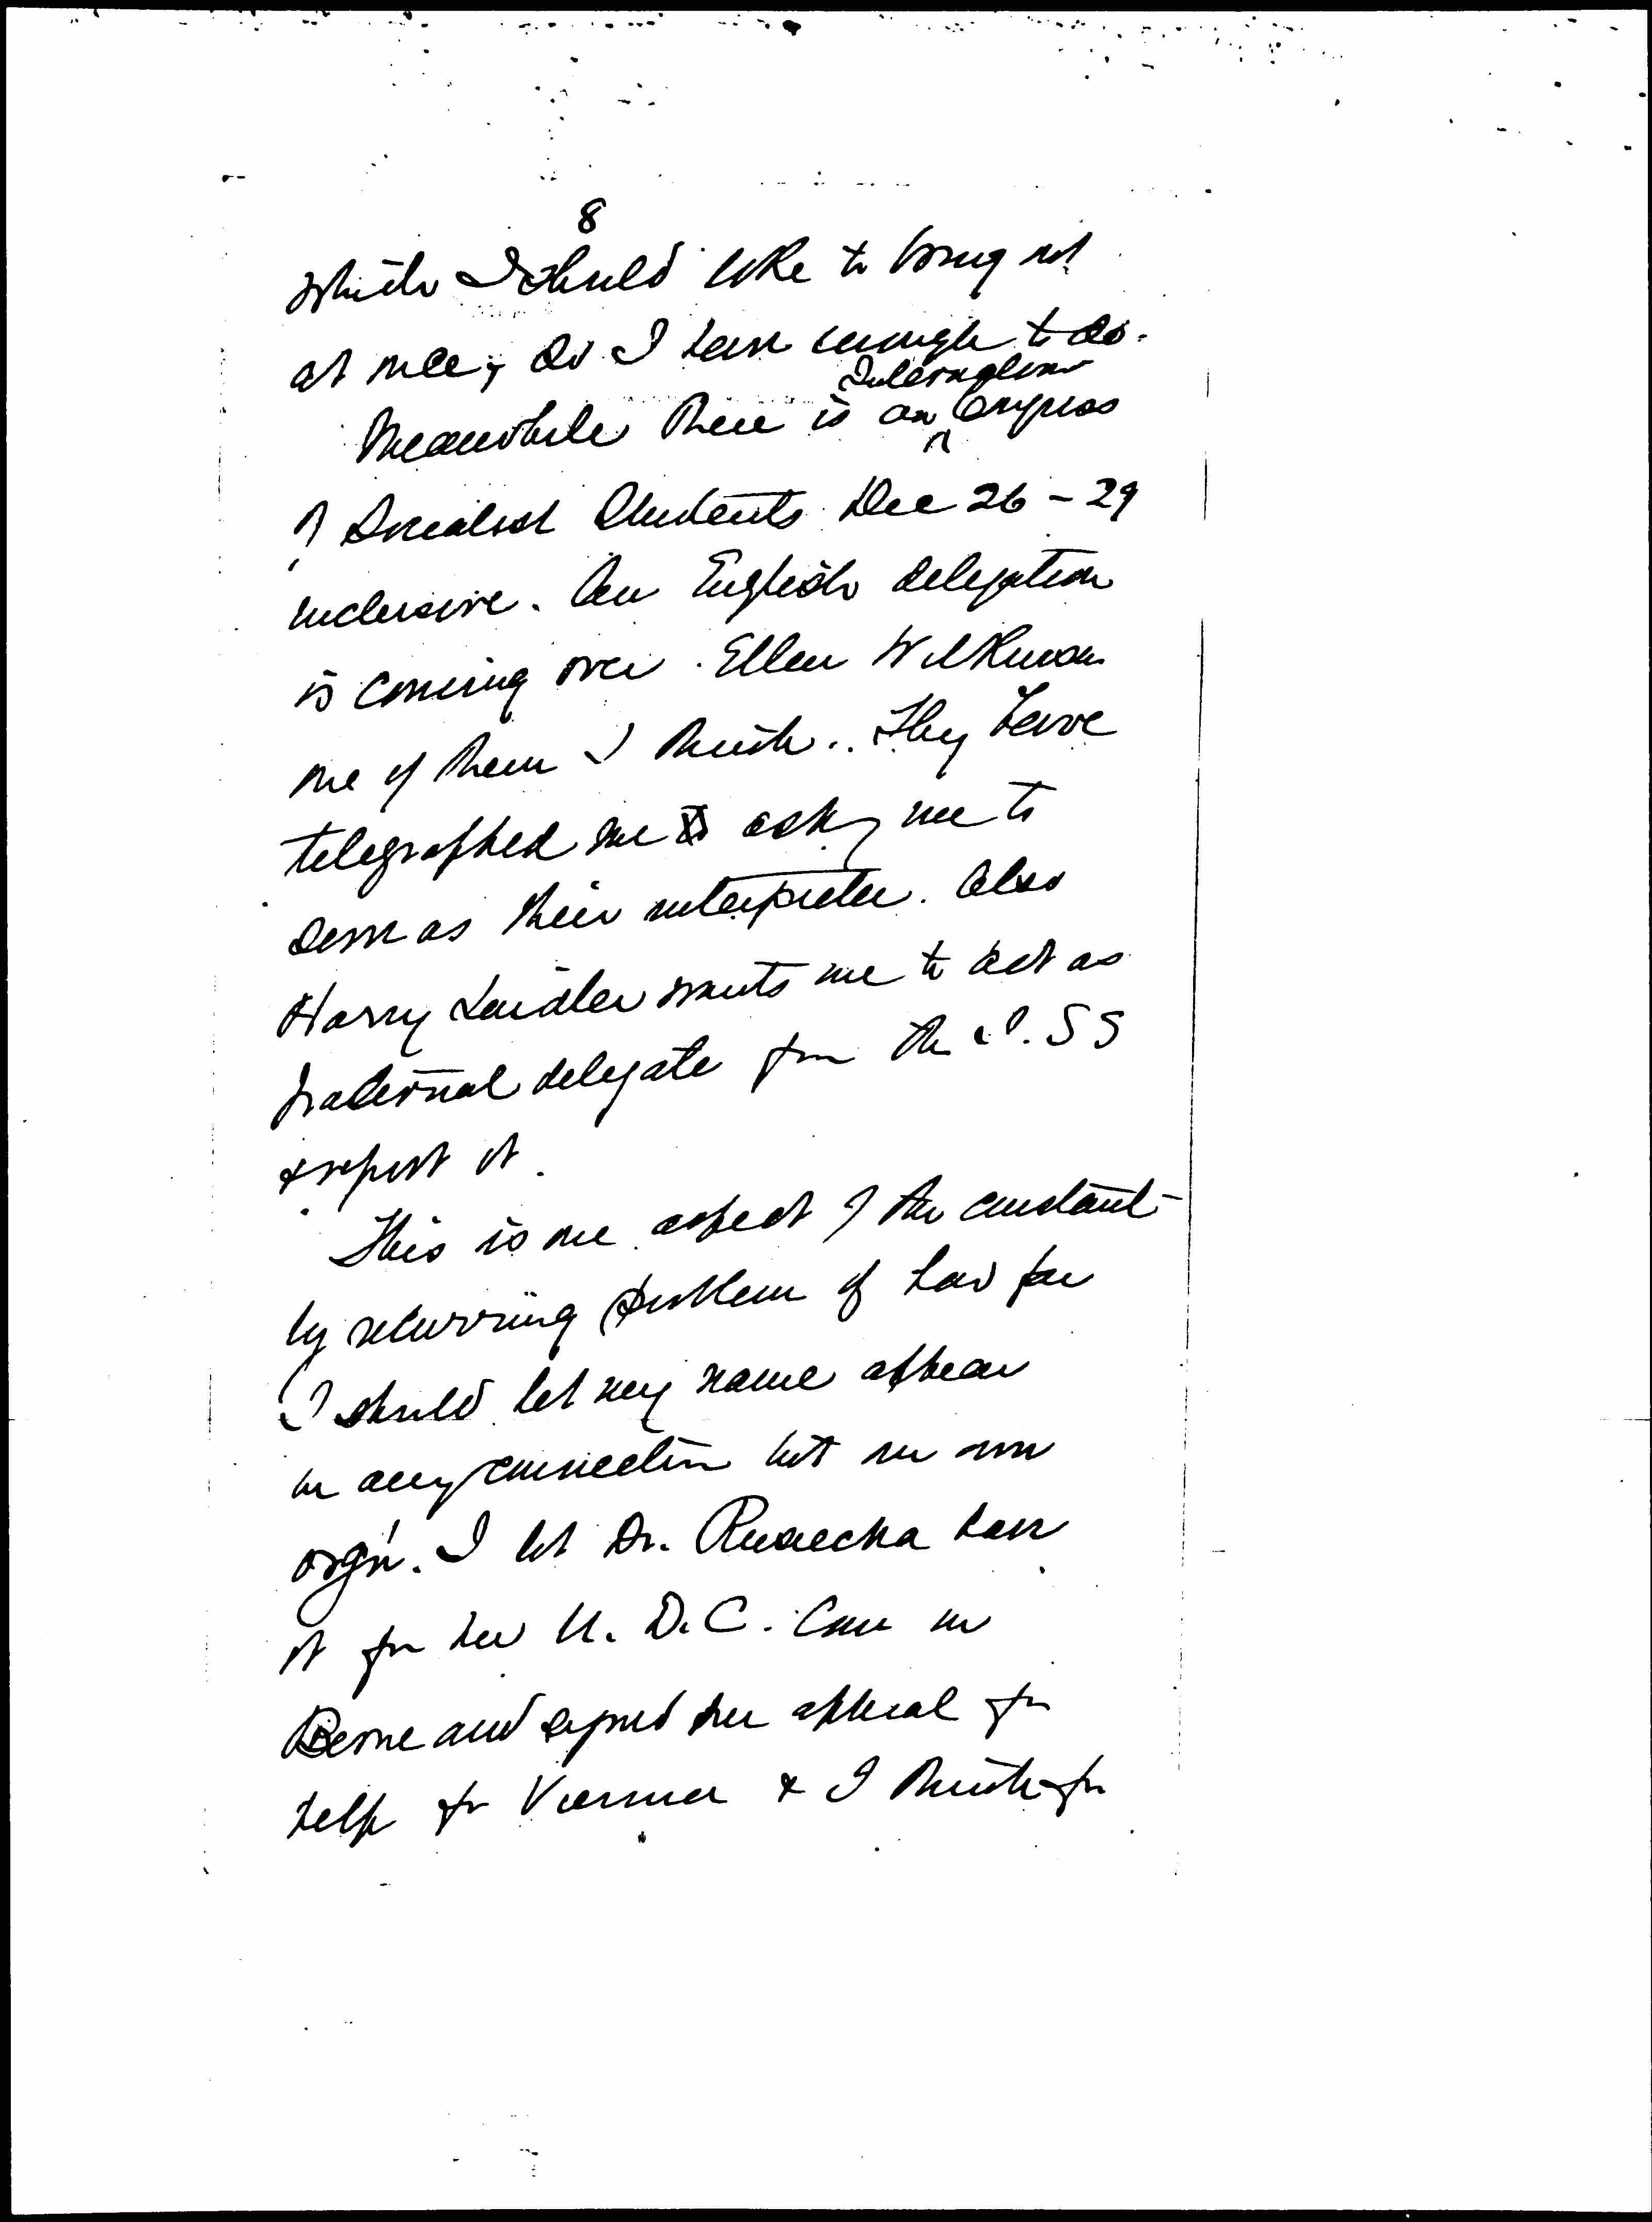 8
which I should like to bring out
at once, so I have enough to do.
International
Meanwhile there is an ^ Congress
of Socialist Students Dec 26 - 29
inclusive. An English delegation
is coming over. Ellen Wilkinson
one of them I think. They have
telegraphed me asking me to
serve as their interpreter. Also
Harry Laidler wants me to act as
fraternal delegate from the I.S S
& report it.
This is one aspect of the constant-
ly recurring problem of how far
I should let my name appear
in any connection but our own
org'n. I let Dr. have
it for her U. D. C. Conf in
Berne and signed her appeal for
help for Vienna & I think for